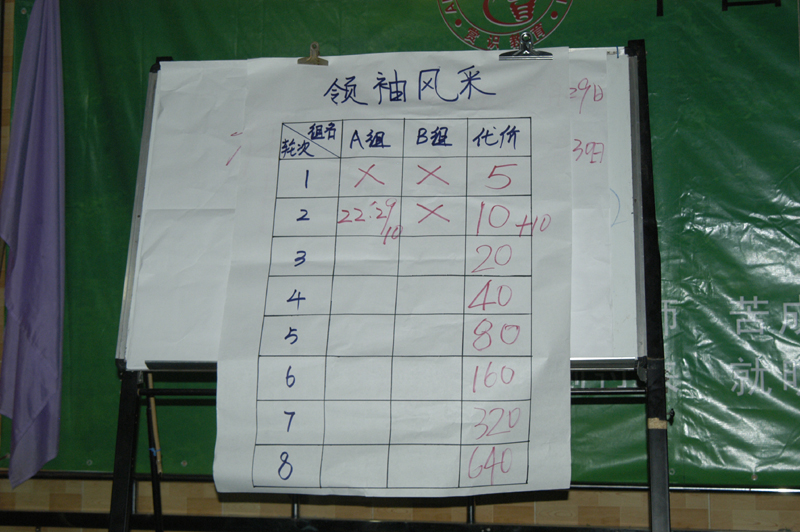 领袖风采
组名 A组 B组 代价
轮次
1 × × 5
2 22:29/10 × 10+10
3 20
4 40
5 80
6 160
7 320
8 640
29日
30日
苦成
就